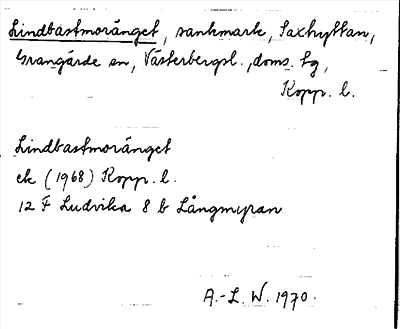 Lindbastmoränget, sankmark, Saxhyttan,
Grangärde sn, Västerbergsl. doms. tg,
Kopp. l.
Lindbastmoränget
ek (1968) Kopp. l.
12 F Ludvika 8 b Långmyran
A.-L. W. 1970.